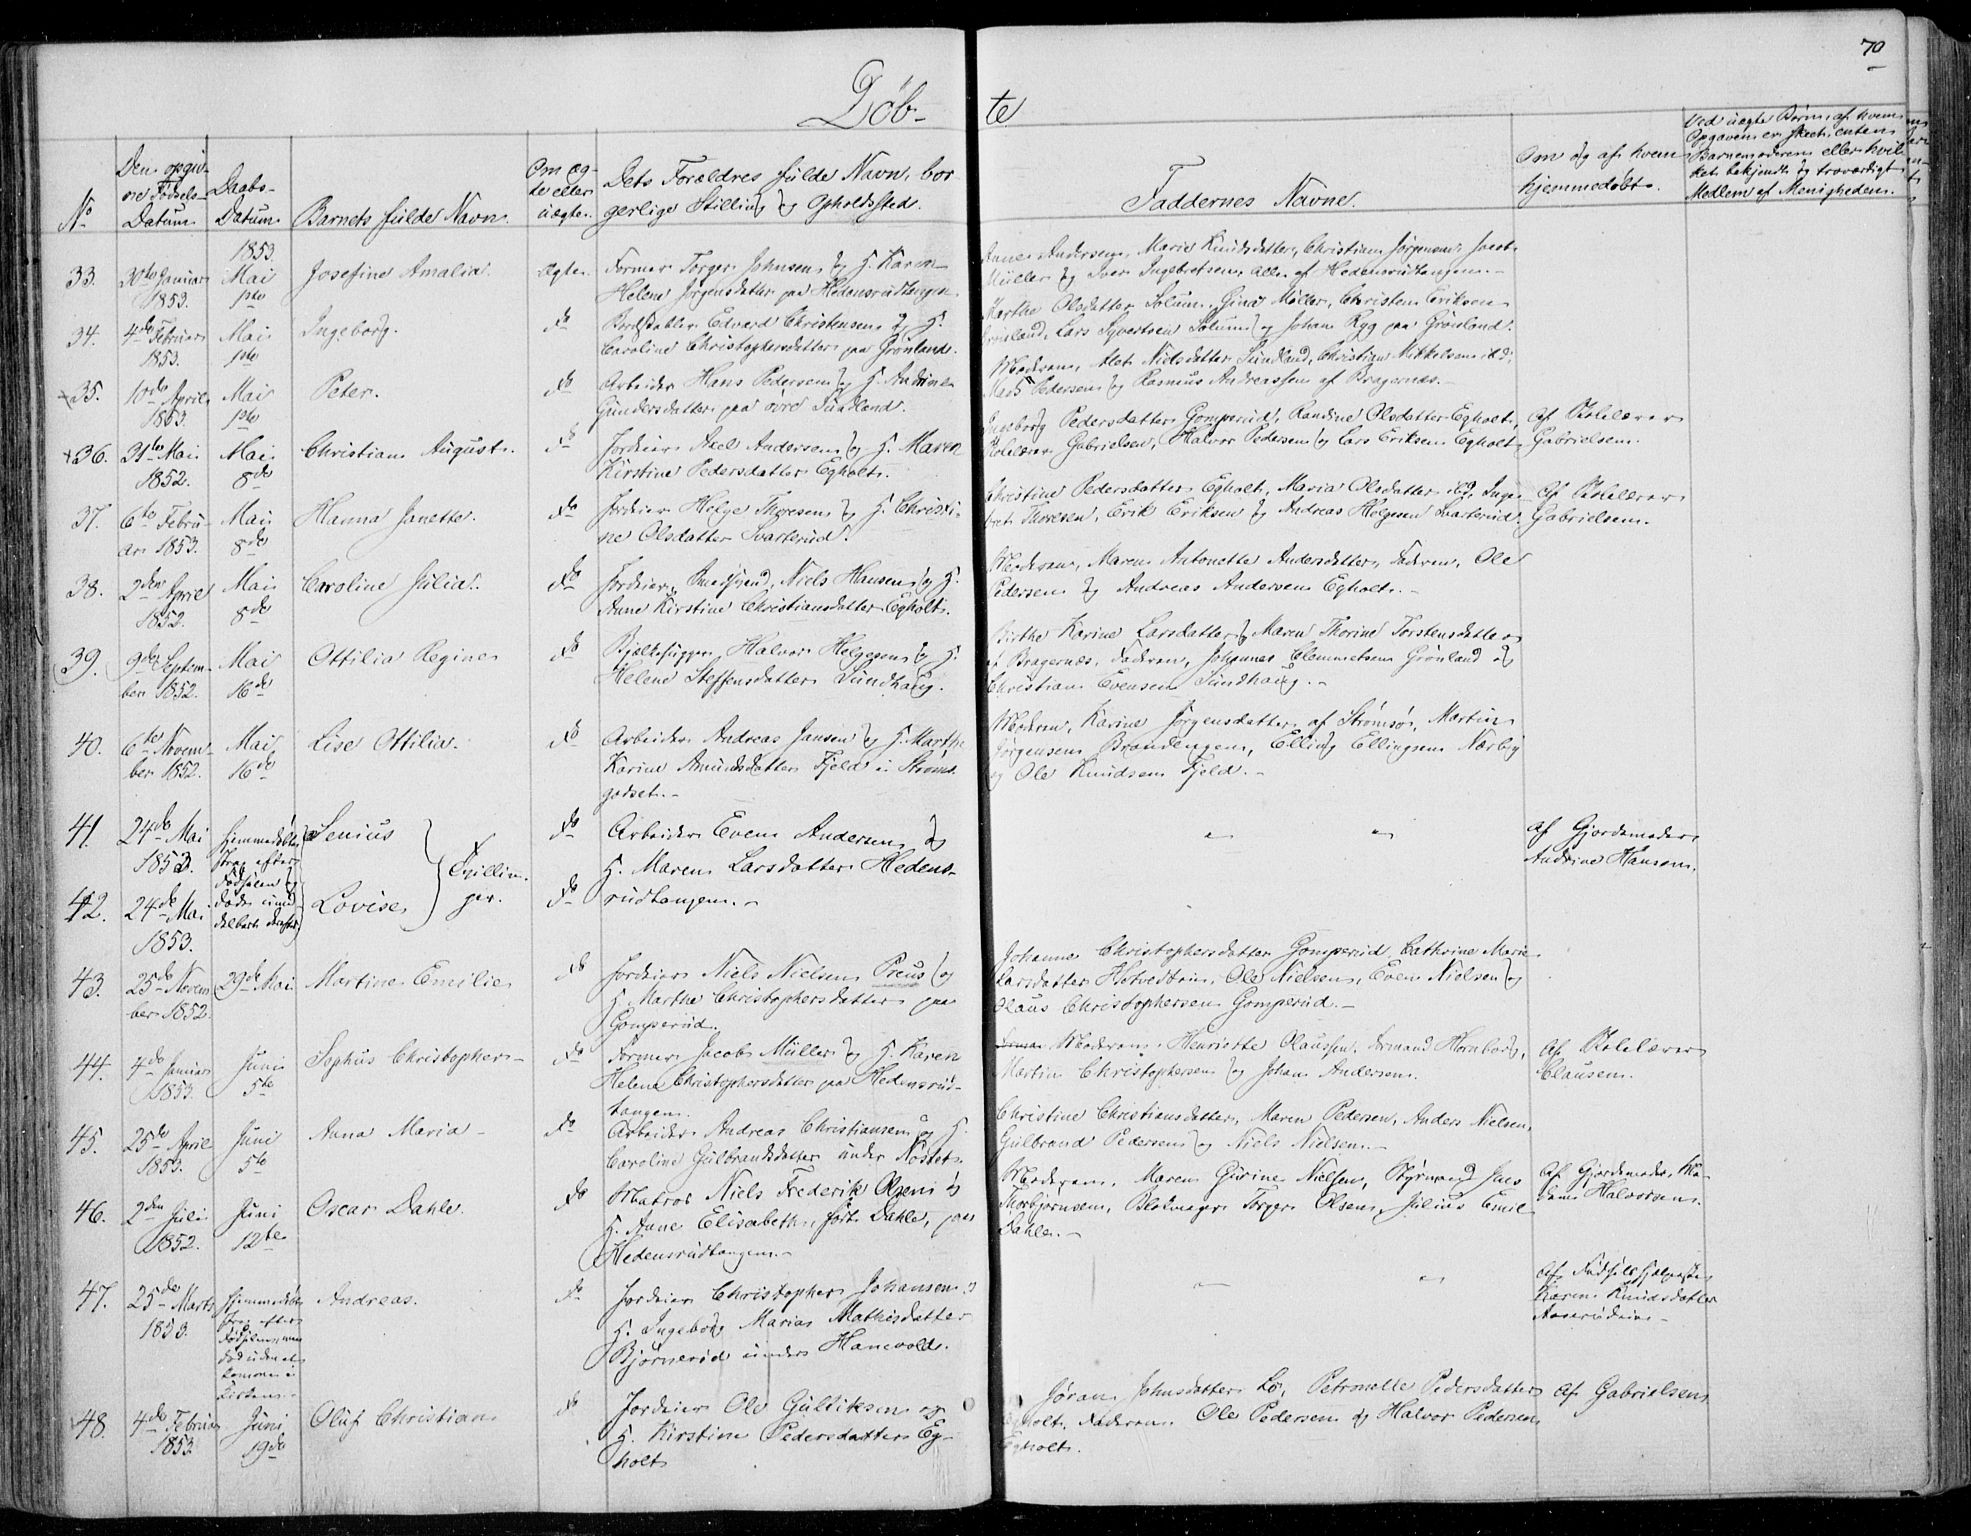 70
Døbte
No
Den opgivne Fødsels-Datum
Daabs-Datum
Barnets fulde Navn
Om ægte eller uægte
Dets Forældres fulde Navn, borgerlige Stilling og Opholdssted.
Faddernes Navne.
Om og af hvem hjemmedøbt.
Ved uægte Børn, af hvem Opgaven er skeet, enten Barnemoderen eller hvilket bekjendt og troværdigt Medlem af Menigheden.
33.
30te Januar 1853.
1853. Mai 1ste
Josefine Amalia.
Ægte.
Former Torger Johnsen og H. Karen
Helene Jørgensdatter paa Hedensrudtangen
Anne Andersen, Marie Knudsdatter, Christian Jørgensen, Jacob
Müller og Iver Ingebretsen, alle af Hedensrudtangen.-
34.
4de Februar 1853.
Mai 1ste
Ingeborg.
do
Bordstabler Edvard Christensen og H.
Caroline Christophersdatter paa Grønland.
Marthe Olsdatter Solum, Gina Møller, Christen Eriksen
Grønland, Lars Syvertsen Solum og Johan Ryg paa Grønland.
35.
10de April 1853.
Mai 1ste
Peter.
do
Arbeider Hans Pedersen og H. Andrine
Gundersdatter paa øvre Sundland.
Moderen, Nielsdatter Sundland, Christian Mikkelsen ibd.
Mads Pedersen og Rasmus Andreassen af Bragernæs.-
36.
31te Mai 1852.
Mai 8de
Christian August.
do
Jordeier Axel Andersen og H. Maren
Kirstine Pedersdatter Egholt.
Ingeborg Pedersdatter Gomperud, Randine Olsdatter Egholt,
Skolelærer Gabrielsen, Halvor Pedersen og Lars Eriksen Egholt
Af Skolelærer Gabrielsen.
37.
6te Februar 1853.
Mai 8de
Hanna Janette.
do
Jordeier Helge Thoresen og H. Christi-
ne Olsdatter Svarterud.
Christine Pedersdatter Egholt, Maria Olsdatter ibd, Inge-
bret Thoresen, Erik Eriksen og Andreas Helgesen Svarterud.
Af Skolelærer Gabrielsen.
38.
2den April 1852.
Mai 8de
Caroline Julia.
do
Jordeier, Niels Hansen og H.
Anne Kirstine Christiansdatter Egholt.
Moderen, Maren Antonette Andersdatter, Faderen, Ole
Pedersen og Andreas Andersen Egholt.-
39.
9de September 1852.
Mai 16de
Ottilia Regine
do
Bjelkehugger Halvor Helgesen og H.
Helene Steffensdatter Sundhaug.
Birthe Karine Larsdatter og Maren Thorine Torstensdatter
af Bragernæs, Faderen, Johannes Clemmetsen Grønland og
Christian Evensen Sundhaug.-
40.
6te November 1852.
Mai 16de
Lise Ottilia.
do
Arbeider Andreas Jansen og H. Marthe
Karine Amundsdatter Fjeld i Strøms-
godset.-
Moderen, Karine Jørgensdatter af Strømsø, Martin
Jørgensen Brandengen, Elling Ellingsen Nærby
og Ole Knudsen Fjeld.-
41.
24de Mai 1853.
Hjemmedøbte strax efter Fødselen og døde umiddelbart derefter
Senius
Tvillinger.
do
Arbeider Even Andersen og
H. Maren Larsdatter Hedens-
rudtangen.-
" "
Af Gjordemoder Andrine Hansen.
42.
24de Mai 1853.
Lovise
do
43.
25de November 1852.
29de Mai
Martine Emilie
do
Jordeier Niels Nielsen Preus og
H. Marthe Christophersdatter paa
Gomperud.
Johanne Christophersdatter Gomperud, Cathrine Marie
Larsdatter Hotvedteie, Ole Nielsen, Even Nielsen og
Olaus Christophersen Gomperud.-
44.
4de Januar 1853.
Juni 5te
Sophus Christopher
do
Former Jacob Müller og H. Karen
Helene Christophersdatter paa Hedensrud-
tangen.
Moderen, Henriette Olaussen, Formand Hornborg,
Martin Christophersen og Johan Andersen.
Af Skolelærer Clausen.
45.
25de April 1853.
Juni 5te
Anna Maria
do
Arbeider Andreas Christiansen og H.
Caroline Gulbrandsdatter under Nøstet.
Christine Christiansdatter, Maren Pedersen, Anders Nielsen,
Gulbrand Pedersen og Niels Nielsen.-
46.
2den Juli 1852.
Juni 12te
Oscar Dahle.
do
Matros Niels Frederik Olsen og
H. Anne Elisabeth, født Dahle, paa
Hedensrudtangen.-
Moderen, Maren Gurine Nielsen, Styrmand Jens
Thorbjørnsen, Blokmager Torger Olsen, Julius Emil
Dahle.-
Af Gjordemoder Madam Halvorsen.
47.
25de Marts 1853.
Hjemmedøbt strax efter Fødselen, men død uden at komme i Kirken.-
Andreas.
do
Jordeier Christopher Johansen og
H. Ingeborg Maria Mathisdatter
Bjørnerud under Hanevold.
" "
Af Fødselshjelpersken Karen Knudsdatter
48.
4de Februar 1853.
Juni 19de
Oluf Christian
do
Jordeier Ole Gulliksen og
H. Kirstine Pedersdatter Eg-
holt
Jøran Johnsdatter Lø, Petronelle Pedersdatter
Egholt, Faderen, Ole Pedersen og Halvor Pedersen
Egholt.
Af Gabrielsen